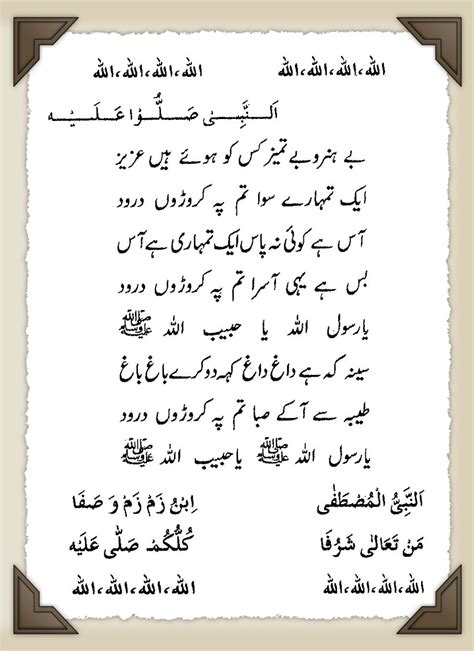 اللہ،اللہ،اللہ،اللہ اللہ،اللہ،اللہ،اللہ
اَلنَّبِیْ صَلُّوْا عَلَیْہ
بے ہنر و بے تمیز کس کو ہوئے ہیں عزیز
ایک تمہارے سوا تم پہ کروڑوں درود
آس ہے کوئی نہ پاس ایک تمہاری ہے آس
بس ہے یہی آسرا تم پہ کروڑوں درود
یارسول اللہ یا حبیب اللہ ﷺ
سینہ کہ ہے داغ داغ کہہ دو کرے باغ باغ
طیبہ سے آکے صبا تم پہ کروڑوں درود
یارسول اللہ ﷺ یاحبیب اللہ ﷺ
اَلنَّبِیُّ الْمُصْطَفٰی اِبْنُ زَمْ زَمْ وَ صَفَا
مَنْ تَعَالٰی شَرُفَا کُلُّکُمْ صَلّٰی عَلَیْه
اللہ،اللہ،اللہ،اللہ اللہ،اللہ،اللہ،اللہ